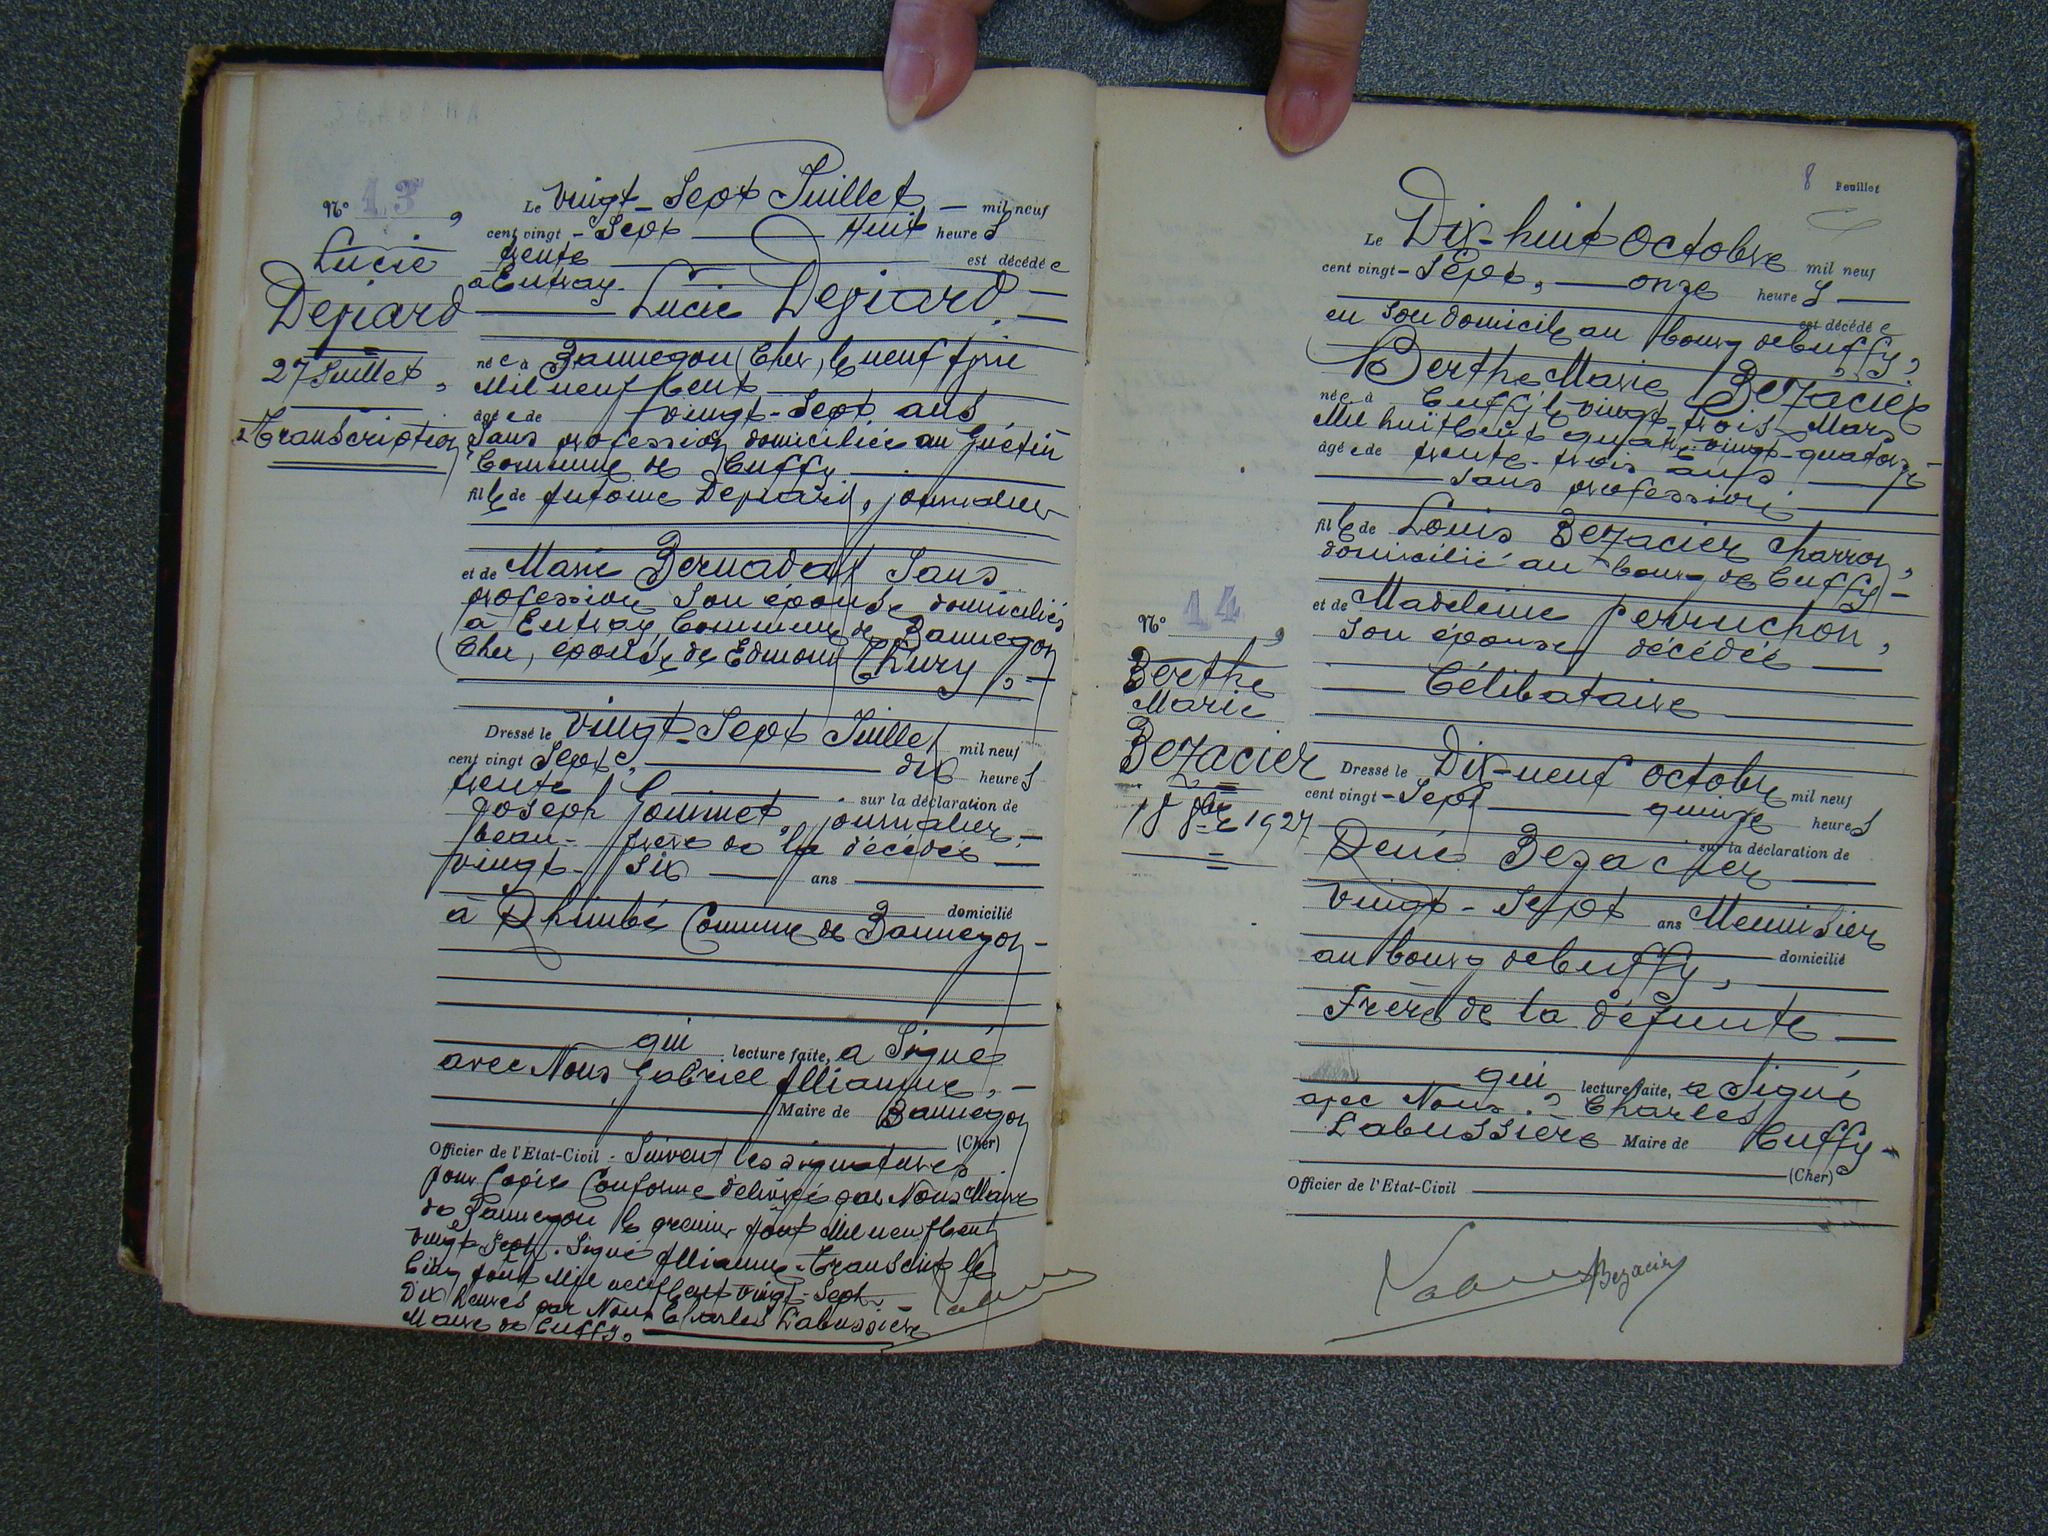 Nº 13,
Lucie
Depiard
27 Juillet,
Transcription
Le vingt-Sept Juillet — mil neuf
cent vingt-Sept — Huit heures
trente — est décédée
à Entray.
Lucie Depiard. —
née à Bannegon (Cher), le neuf
Mil neuf Cent
âgée de vingt-Sept ans
Sans profession domiciliée au Guétin
Commune de Cuffy —
fille de Antoine Depiard, journalier
et de Marie Bernadat Sans
profession Son épouse domiciliés
à Entray, Commune de Bannegon
Cher, épouse de Edmond Thury, —
Dressé le vingt-Sept Juillet mil neuf
cent vingt Sept, — dix heures
trente — sur la déclaration de
Joseph journalier, —
beau-frère de la décédée —
vingt-Six — ans —
domicilié
à Commune de Bannegon —
qui lecture faite, a Signé
avec Nous Gabriel Allianne, —
Maire de Bannegon
(Cher)
Officier de l'Etat-Civil. Suivent les signatures
pour Copie Conforme délivrée par Nous Maire
de Bannegon le premier Août Mil neuf Cent
vingt-Sept. Signé Allianne. Transcrit le
Cinq Août Mil neuf Cent vingt-Sept,
Dix heures par Nous Charles Labussière
Maire de Cuffy. —
8 Feuillet
Le Dix-huit Octobre mil neuf
cent vingt-Sept, — onze heures —
est décédée
en Son domicile au bourg de Cuffy,
Berthe Marie Bezacier
née à Cuffy le vingt-trois Mars
Mil huit Cent quatre-vingt-quatorze
âgée de trente-trois ans —
— Sans profession —
fille de Louis Bezacier Charron,
domicilié au bourg de Cuffy —
et de Madeleine Perruchon,
Son épouse, décédée —
— Célibataire —
Nº 14,
Berthe
Marie
Bezacier
18 8bre 1927
Dressé le Dix-neuf Octobre mil neuf
cent vingt-Sept — quinze heures
sur la déclaration de
René Bezacier —
vingt-Sept ans Menuisier
domicilié
au bourg de Cuffy, —
Frère de la défunte —
qui lecture faite, a Signé
avec Nous. Charles
Labussière Maire de Cuffy —
(Cher)
Officier de l'Etat-Civil —
Bezacier